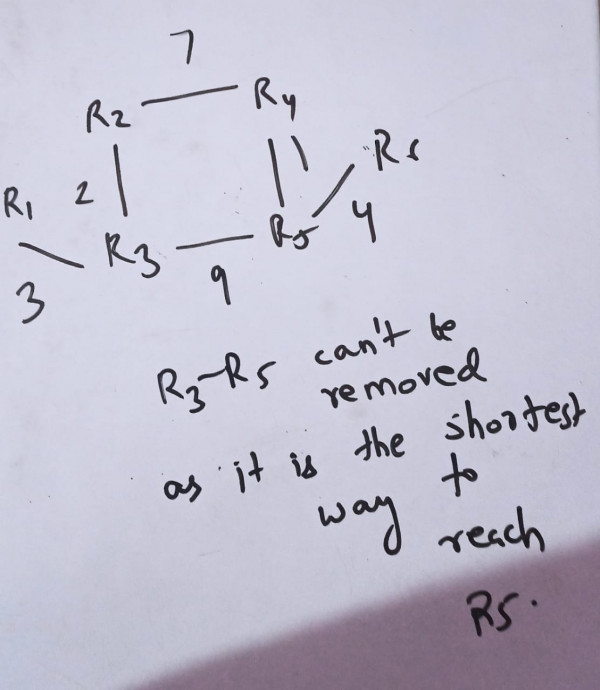 7
R2 R4
R1 2 R5
R3 R5 4
3 9
R3-R5 can't be
removed
as it is the shortest
way to
reach
R5.